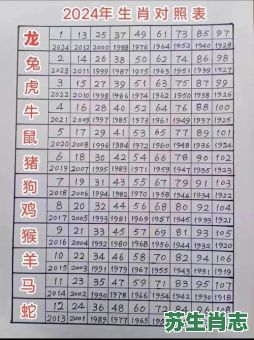 2024年生肖对照表
龙 1 13 25 37 49 61 73 85 97
2024 2012 2000 1988 1976 1964 1952 1940 1928
兔 2 14 26 38 50 62 74 86 98
2023 2011 1999 1987 1975 1963 1951 1939 1927
虎 3 15 27 39 51 63 75 87 99
2022 2010 1998 1986 1974 1962 1950 1938 1926
牛 4 16 28 40 52 64 76 88 100
2021 2009 1997 1985 1973 1961 1949 1937 1925
鼠 5 17 29 41 53 65 77 89 101
2020 2008 1996 1984 1972 1960 1948 1936 1924
猪 6 18 30 42 54 66 78 90 102
2019 2007 1995 1983 1971 1959 1947 1935 1923
狗 7 19 31 43 55 67 79 91 103
2018 2006 1994 1982 1970 1958 1946 1934 1922
鸡 8 20 32 44 56 68 80 92 104
2017 2005 1993 1981 1969 1957 1945 1933 1921
猴 9 21 33 45 57 69 81 93
2016 2004 1992 1980 1968 1956 1944 1932
羊 10 22 34 46 58 70 82 94 106
2015 2003 1991 1979 1967 1955 1943 1931
马 11 23 35 47 59 71 83 95 107
2014 2002 1990 1978 1966 1954 1942 1930
蛇 12 24 36 48 60 72 84 96 108
2013 2001 1989 1977 1965
苏生肖志